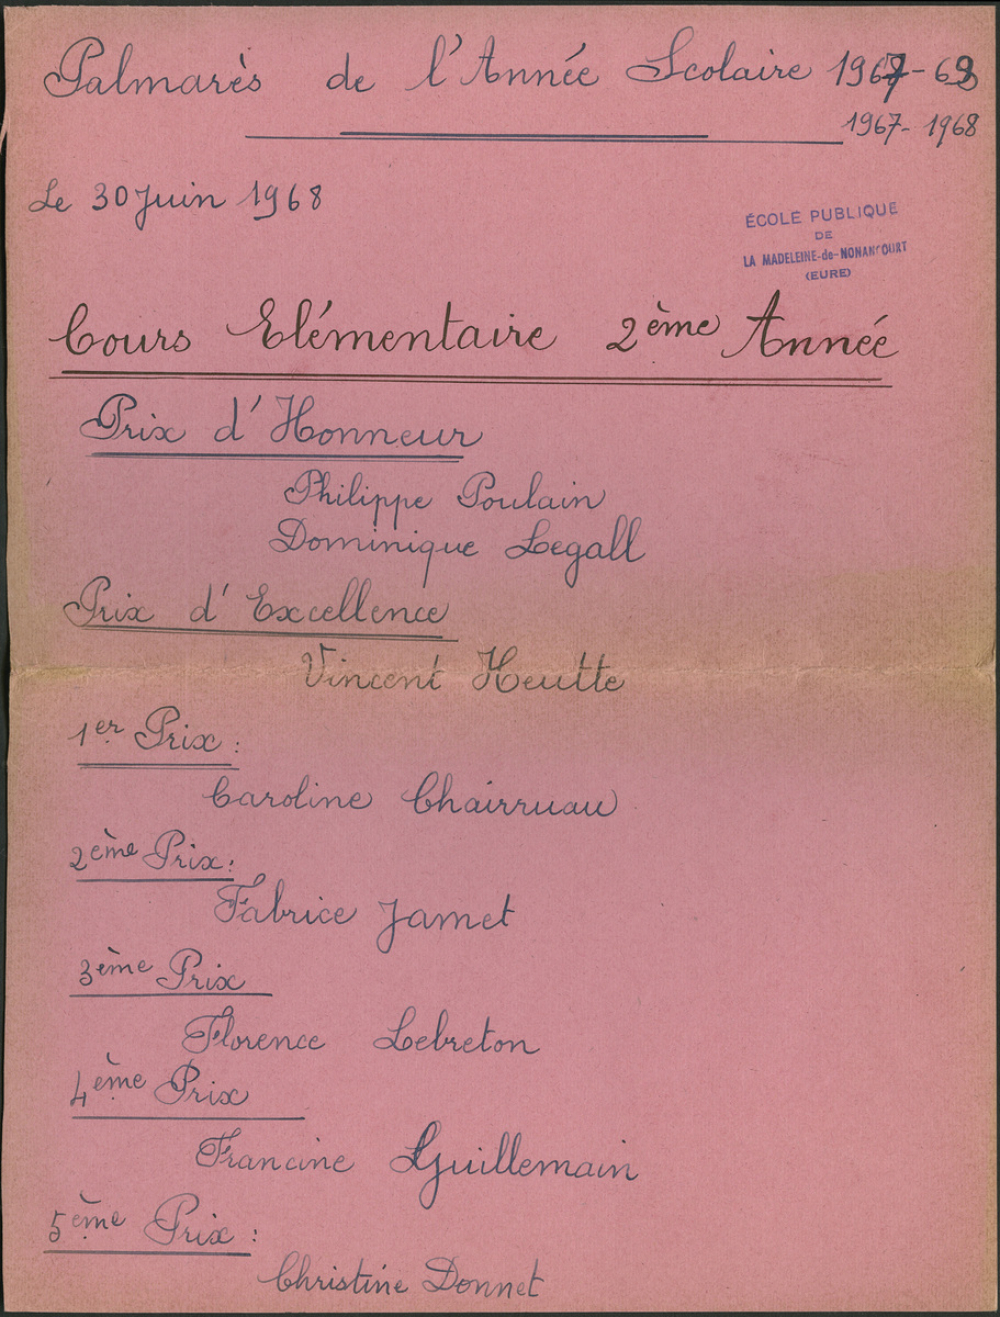 Palmarès de l'Année Scolaire 1967-68
1967-1968
Le 30 Juin 1968
ÉCOLE PUBLIQUE
DE
LA MADELEINE-de-NONANCOURT
(EURE)
Cours Elémentaire 2ème Année
Prix d'Honneur
Philippe Poulain
Dominique Legall
Prix d'Excellence
Vincent Heutte
1er Prix :
Caroline Chairruau
2ème Prix :
Fabrice Jamet
3ème Prix
Florence Lebreton
4ème Prix
Francine Guillemain
5ème Prix :
Christine Donnet